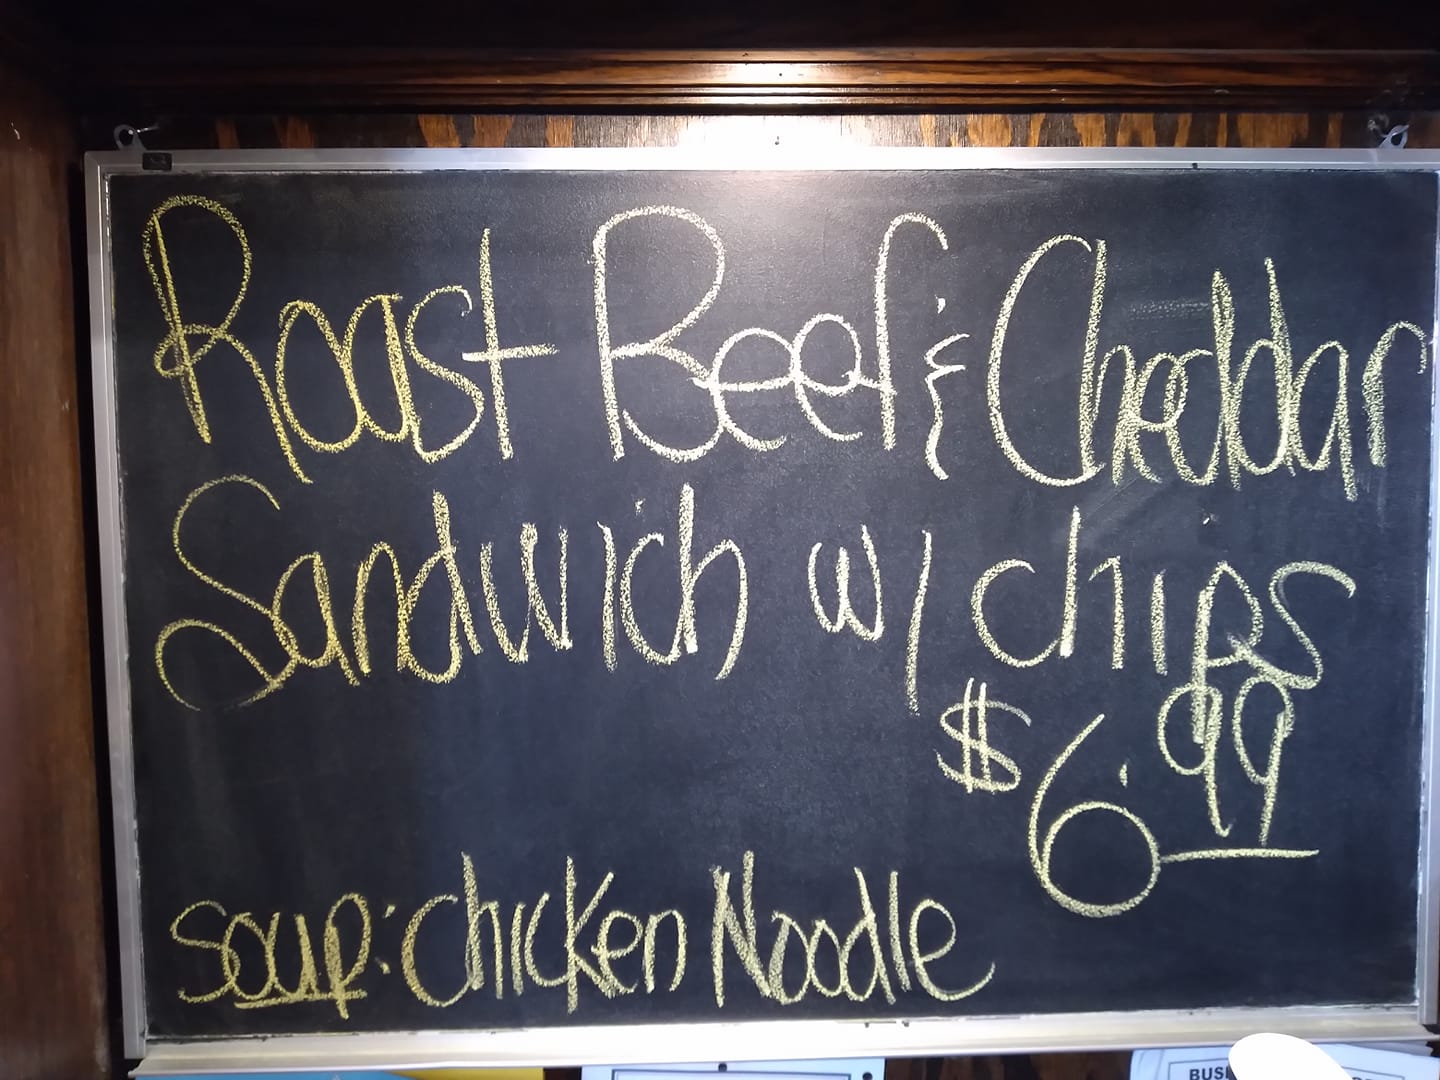 Roast Beef & Cheddar
Sandwich w/ chips
$6.99
Soup: Chicken Noodle
BUSI